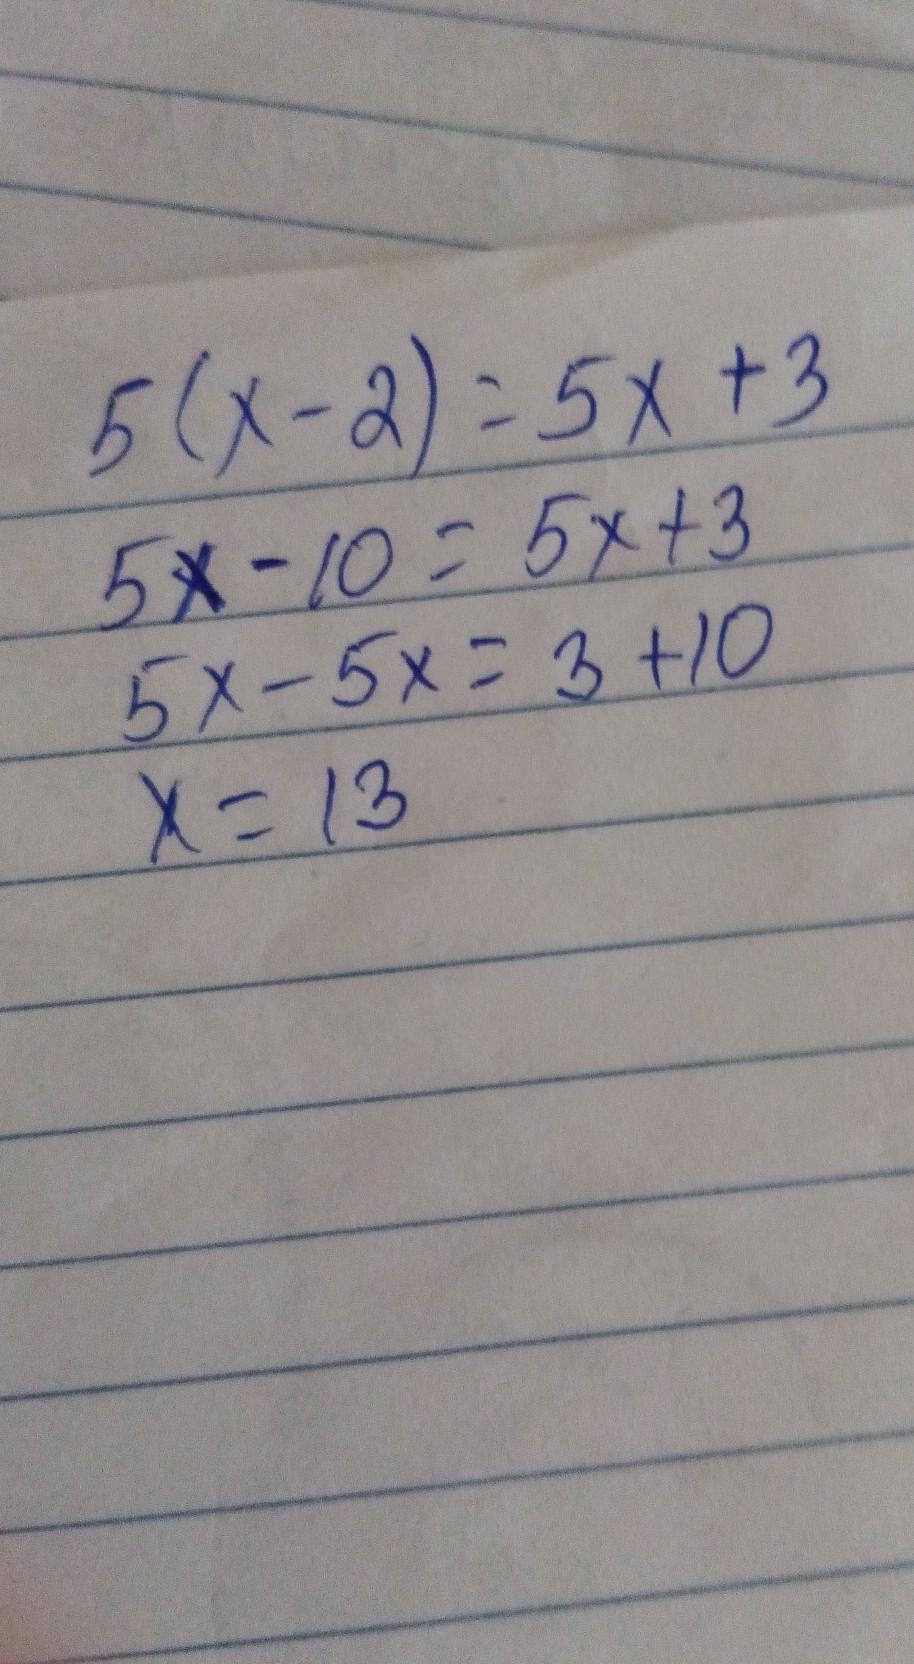 5(x-2)=5x+3
5x-10=5x+3
5x-5x=3+10
x=13